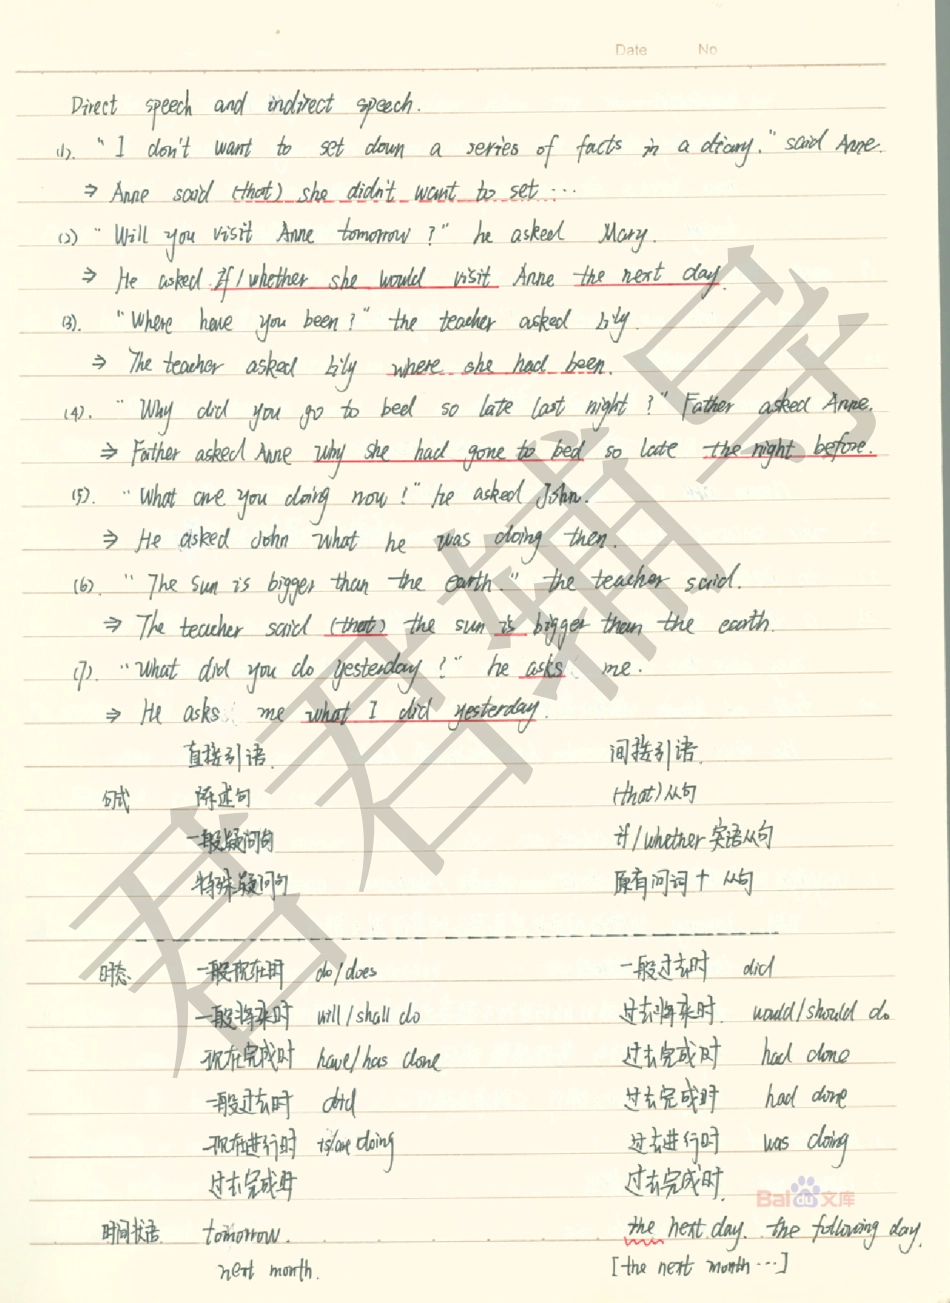 Date No
Direct speech and indirect speech.
(1). "I don't want to set down a series of facts in a diary." said Anne.
⇒ Anne said (that) she didn't want to set ...
(2) "Will you visit Anne tomorrow?" he asked Mary.
⇒ He asked if/whether she would visit Anne the next day.
(3). "Where have you been?" the teacher asked Lily.
⇒ The teacher asked Lily where she had been.
(4). "Why did you go to bed so late last night?" Father asked Anne.
⇒ Father asked Anne why she had gone to bed so late the night before.
(5). "What are you doing now?" he asked John.
⇒ He asked John what he was doing then.
(6). "The sun is bigger than the earth." the teacher said.
⇒ The teacher said (that) the sun is bigger than the earth.
(7). "What did you do yesterday?" he asks me.
⇒ He asks me what I did yesterday.
直接引语. 间接引语.
句式 陈述句 (that)从句
一般疑问句 if/whether宾语从句
特殊疑问句 原有问词+从句
时态. 一般现在时 do/does 一般过去时 did
一般将来时 will/shall do 过去将来时. would/should do.
现在完成时 have/has done 过去完成时 had done
一般过去时 did 过去完成时 had done
现在进行时 is/are doing 过去进行时 was doing
过去完成时 过去完成时.
Baidu文库
时间状语. tomorrow. the next day. the following day.
next month. [the next month ...]
君君辅导